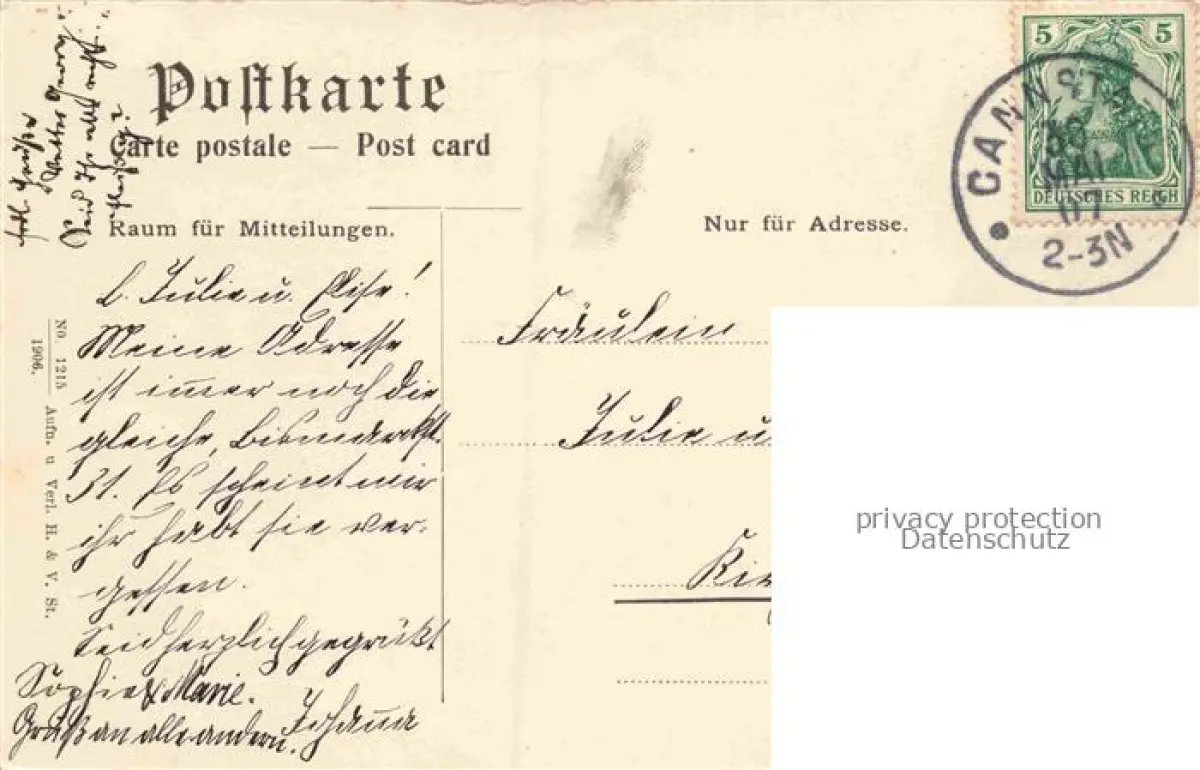 Postkarte
Carte postale — Post card
Raum für Mitteilungen.
Nur für Adresse.
5 5
DEUTSCHES REICH
CANNST
30
MAI
07
2-3N
L. Julie u. Elise!
Meine Adresse
ist immer noch die
gleiche, Bismarckst.
31. Es scheint mir
ihr habt sie ver-
gessen.
Seid herzlich gegrüßt
Sophie & Marie.
Johanna
Gruß an alle andern.
Seid Ihr alle recht
fleißig?
Fräulein
Julie u
No 1215 Aufn. u Verl. H. & V. St.
1906.
privacy protection
Datenschutz